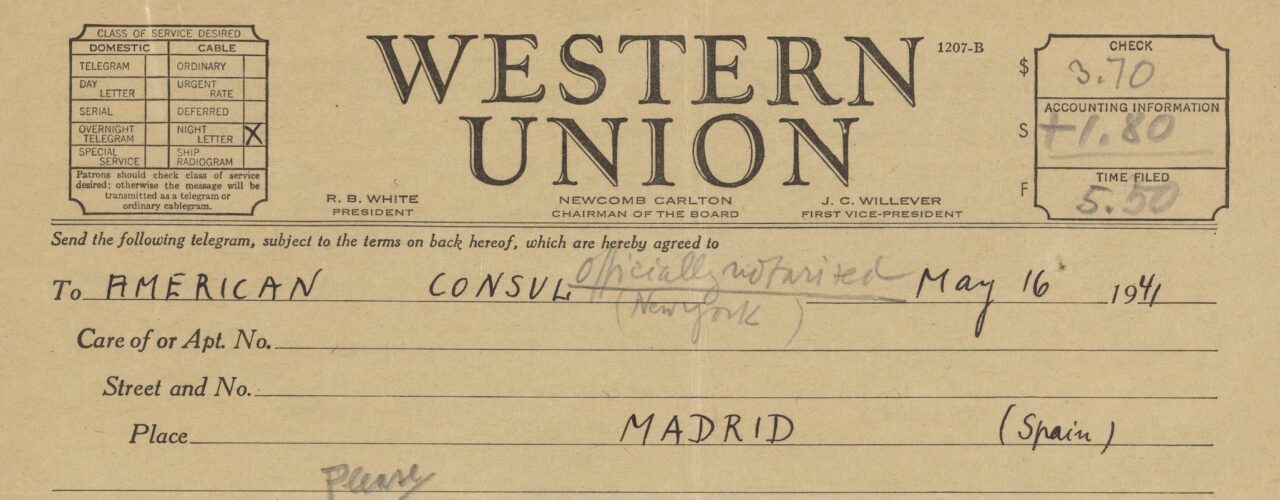 CLASS OF SERVICE DESIRED
DOMESTIC CABLE
TELEGRAM ORDINARY
DAY LETTER URGENT RATE
SERIAL DEFERRED
OVERNIGHT TELEGRAM NIGHT LETTER X
SPECIAL SERVICE SHIP RADIOGRAM
Patrons should check class of service
desired; otherwise the message will be
transmitted as a telegram or
ordinary cablegram.
WESTERN
UNION
1207-B
R. B. WHITE
PRESIDENT
NEWCOMB CARLTON
CHAIRMAN OF THE BOARD
J. C. WILLEVER
FIRST VICE-PRESIDENT
CHECK
$ 3.70
ACCOUNTING INFORMATION
S +1.80
TIME FILED
F 5.50
Send the following telegram, subject to the terms on back hereof, which are hereby agreed to
To AMERICAN CONSUL officially notarised May 16 1941
(New York)
Care of or Apt. No.
Street and No.
Place MADRID (Spain)
Please